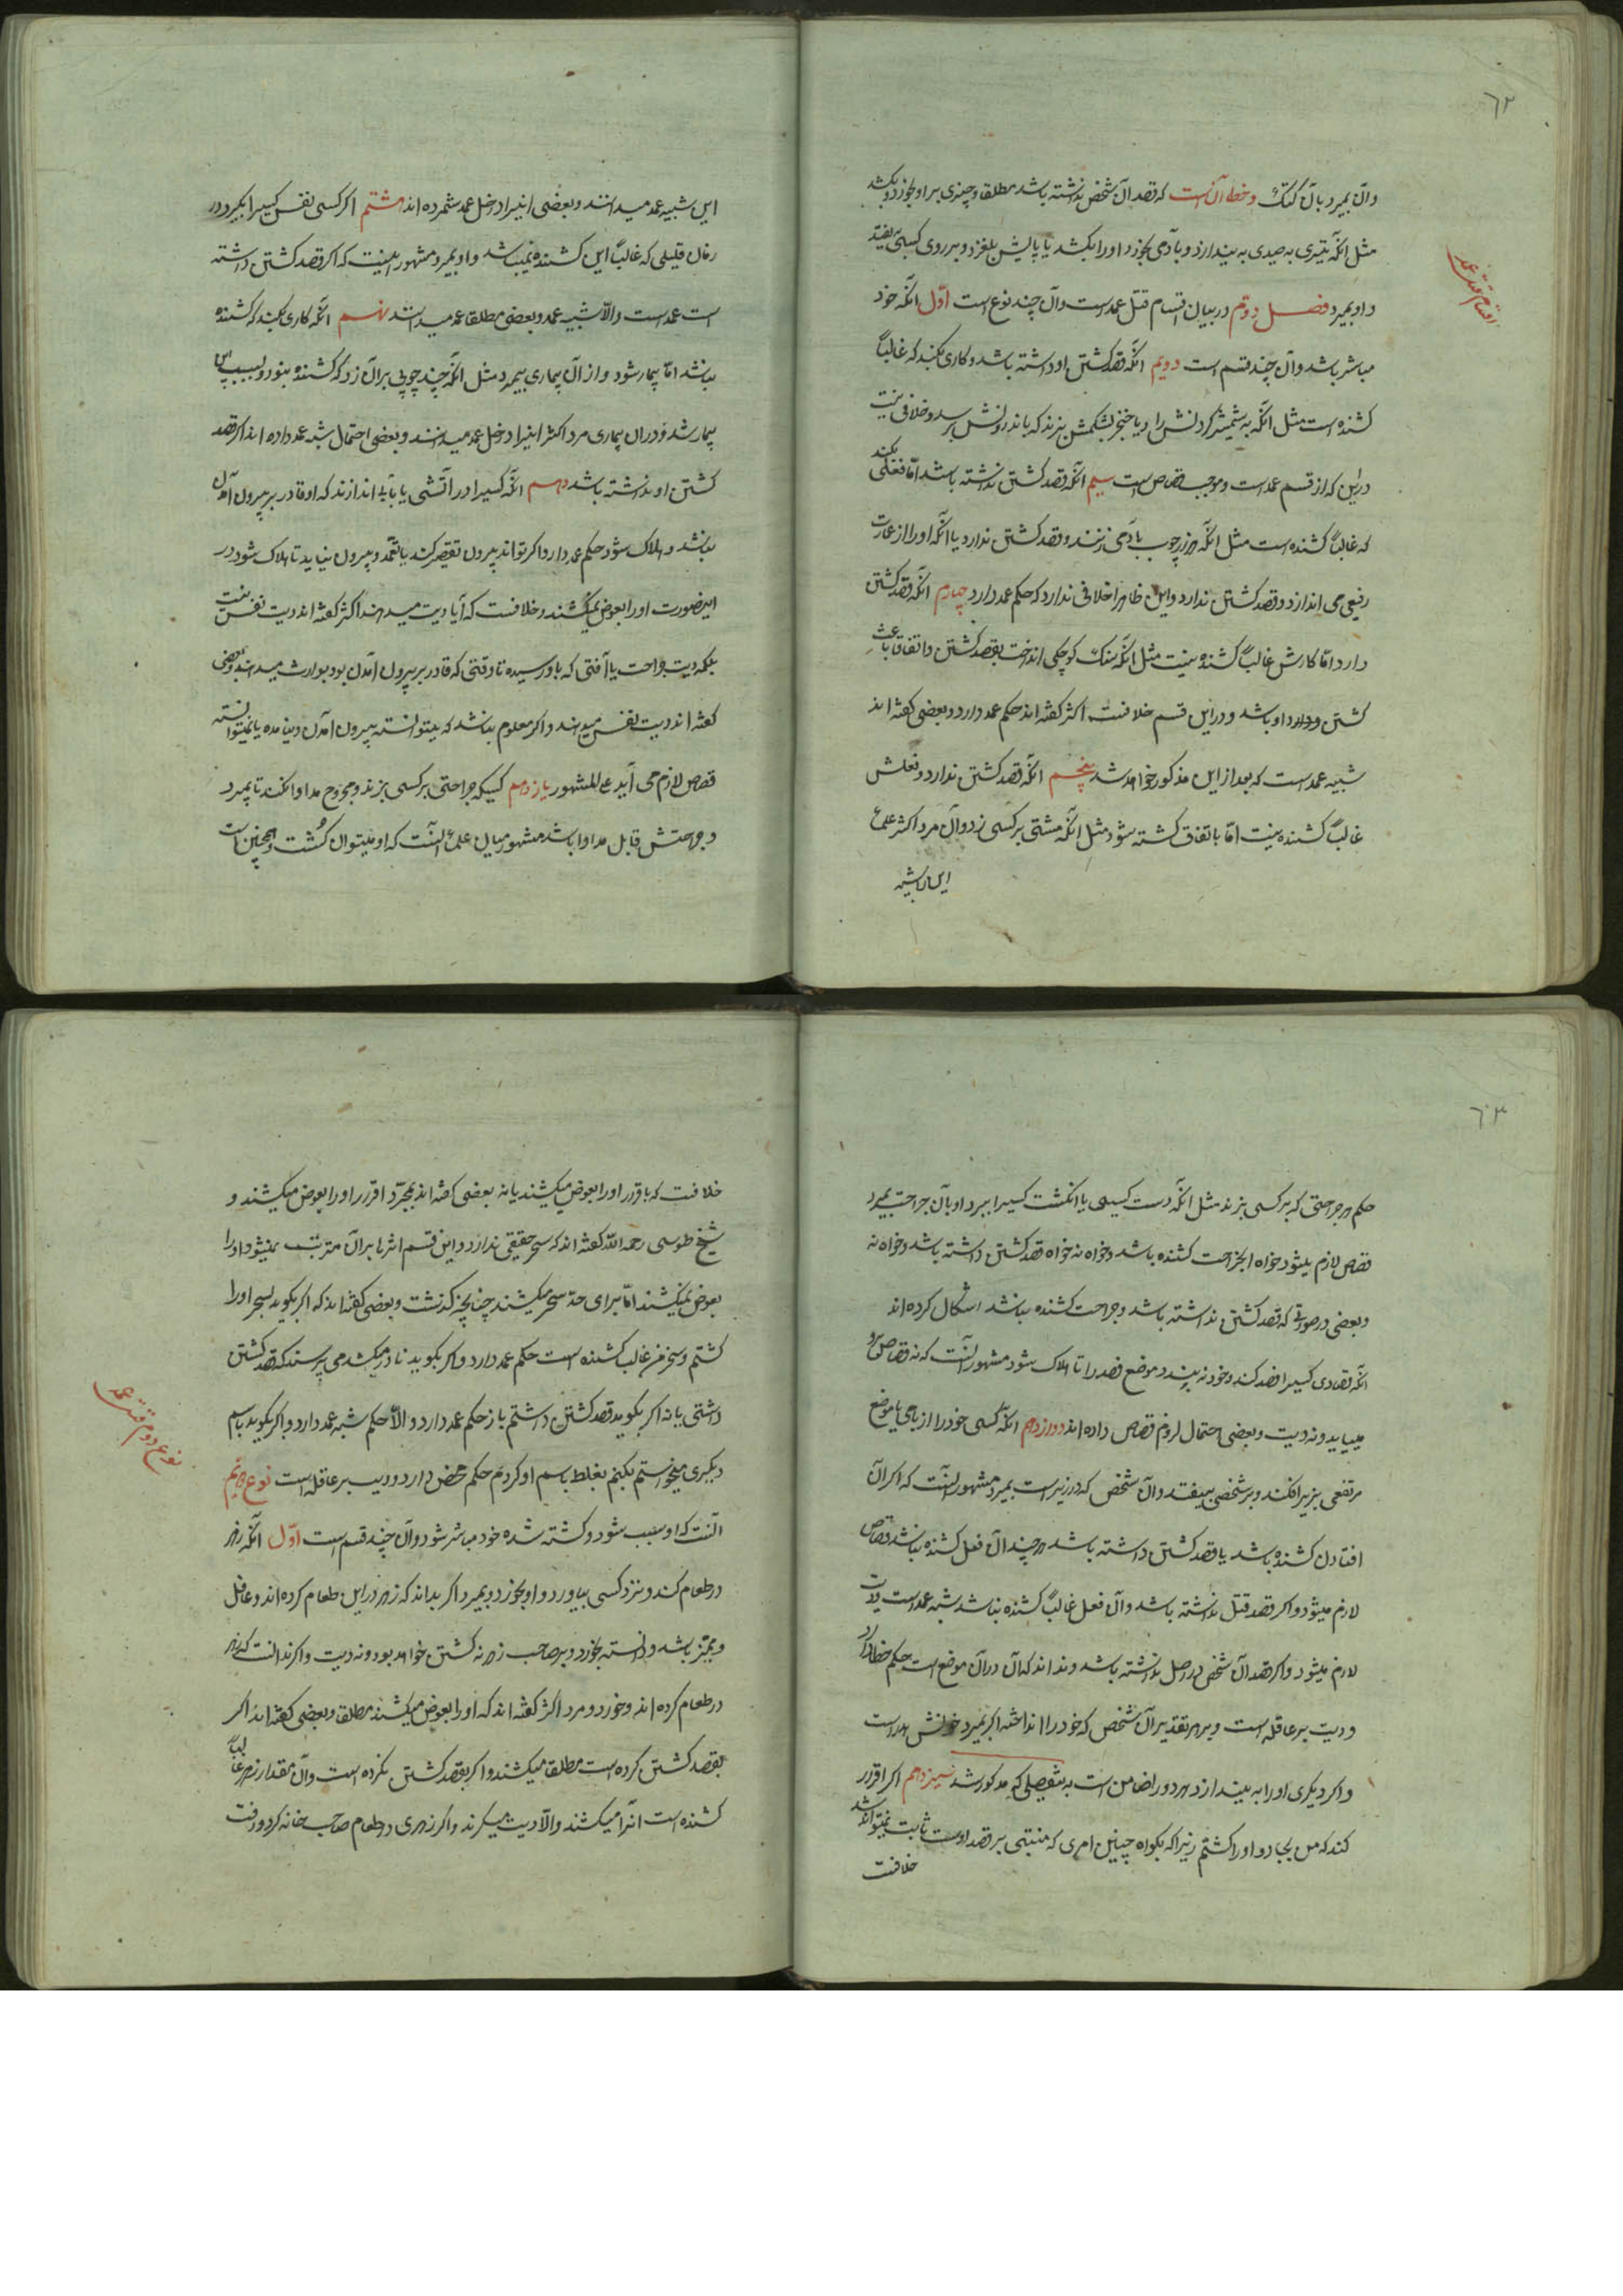 ٦٢
وآن بمیرد بآن کتک و خطا آن است که قصد آن شخص نداشته باشد مطلقا و چیزی بر او بخورد و بکشد
مثل آنکه تیری به صیدی به بیندازد و بآدمی بخورد و او را بکشد یا پایش بلغزد و بر روی کسی بیفتد
و او بمیرد فصل دوّم در بیان اقسام قتل عمد است و آن چند نوع است اوّل آنکه خود
اقسام قتل عمد
مباشر باشد و آن چند قسم است دویم آنکه قصد کشتن او داشته باشد و کاری بکند که غالباً
کشنده است مثل آنکه به شمشیر گردنش را و یا خنجر بشکمش بزند که باندرونش برسد و خلافی نیست
در این که از قسم عمد است و موجب قصاص است سیم آنکه قصد کشتن نداشته باشد امّا فعلی بکند
که غالباً کشنده است مثل آنکه هزار چوب بآدمی زنند و قصد کشتن ندارد یا آنکه او را از عمارت
رفیعی می اندازد و قصد کشتن ندارد و این ظاهرا خلافی ندارد که حکم عمد دارد چهارم آنکه قصد کشتن
دارد امّا کارش غالباً کشنده نیست مثل آنکه سنک کوچکی انداخت بقصد کشتن و اتفاقا باعث
کشتن او باشد و در این قسم خلافست اکثر گفته اند حکم عمد دارد و بعضی گفته اند
شبیه عمد است که بعد از این مذکور خواهد شد پنجم آنکه قصد کشتن ندارد و فعلش
غالباً کشنده نیست امّا باتفاق کشته شود مثل آنکه مشتی بر کسی زد و آن مرد اکثر علما
این را شبیه
این شبیه عمد میدانند و بعضی اینرا داخل عمد شمرده اند هشتم اگر کسی نفس کسیرا بگیرد در
زمان قلیلی که غالباً این کشنده نمیباشد و او بمیرد مشهور اینست که اگر قصد کشتن داشته
است عمد است و الّا شبیه عمد و بعضی مطلقا عمد میدانند نهم آنکه کاری بکند که کشنده
نباشد امّا بیمار شود و از آن بیماری بمیرد مثل آنکه چند چوبی بر آن زد که کشنده نبود و بسبب این
بیمار شد و در آن بیماری مرد اکثر اینرا داخل عمد میدانند و بعضی احتمال شبه عمد داده اند اگر قصد
کشتن او نداشته باشد دهم آنکه کسیرا در آتشی یا بآب اندازند که او قادر بر بیرون آمدن
نباشد و هلاک شود حکم عمد دارد و اگر تواند بیرون تقصیر کند یا تعمّد و بیرون نیاید تا هلاک شود در
اینصورت او را بعوض نمیکشند و خلافست که آیا دیت میدهند اکثر گفته اند دیت نفس نیست
بلکه دیت جراحت یا آفتی که باو رسیده تا وقتی که قادر بر بیرون آمدن بود بوارث میدهند و بعضی
گفته اند دیت نفس میدهند و اگر معلوم نباشد که میتوانسته بیرون آمدن و نیامده یا نمیتوانسته
قصاص لازم می آید علی المشهور یازدهم کسیکه جراحتی بر کسی بزند و مجروح مداوا نکند تا بمیرد
و جراحتش قابل مداوا باشد مشهور میان علما آنست که او میتوان کشت و همچنین است
٦٣
حکم هر جراحتی که بر کسی بزند مثل آنکه دست کسی یا انکشت کسیرا ببرد او بآن جراحت بمیرد
قصاص لازم میشود خواه آن جراحت کشنده باشد و خواه نه خواه قصد کشتن داشته باشد و خواه نه
و بعضی در صورتی که قصد کشتن نداشته باشد و جراحت کشنده نباشد اشکال کرده اند
آنکه فصادی کسیرا فصد کند و خود نه بندد موضع فصد را تا هلاک شود مشهور آنست که نه قصاص بر او
میباید و نه دیت و بعضی احتمال لزوم قصاص داده اند دوازدهم آنکه کسی خود را از بامی یا موضع
مرتفعی بزیر افکند و بر شخصی بیفتد و آن شخص که در زیر است بمیرد مشهور آنست که اگر آن
افتادن کشنده باشد یا قصد کشتن داشته باشد هر چند آن فعل کشنده نباشد قصاص
لازم میشود و اگر قصد قتل نداشته باشد و آن فعل غالباً کشنده نباشد شبه عمد است دیت
لازم میشود و اگر قصد آن شخص در اصل نداشته باشد و نداند که آن در آن موضع است حکم خطا دارد
و دیت بر عاقله است و بر هر تقدیر آن شخص که خود را انداخته اگر بمیرد خونش هدر است
و اگر دیگری او را به بیندازد هر دو را ضامن است به تفصیلی که مذکور شد سیزدهم اگر اقرار
کند که من بجادو او را کشتم زیرا که بگواه چنین امری که مبتنی بر قصد اوست ثابت نمیتواند شد
خلافست
خلافست که باقرار او را بعوض میکشند یا نه بعضی گفته اند بمجرّد اقرار او را بعوض میکشند و
شیخ طوسی رحمه اللّه گفته اند که سحر حقیقتی ندارد و این قسم اثرها بر آن مترتب نمیشود و او را
بعوض نمیکشند امّا برای حدّ سحر میکشند چنانچه گذشت و بعضی گفته اند که اگر بگوید بسحر او را
کشتم و سحر من غالب کشنده است حکم عمد دارد و اگر بگوید نادر میکشد می پرسند که قصد کشتن
داشتی یا نه اگر بگوید قصد کشتن داشتم باز حکم عمد دارد و الّا حکم شبه عمد دارد و اگر بگوید باسم
دیگری میخواستم بکنم بغلط باسم او کردم حکم محض دارد و دیت بر عاقله است نوع دویم
نوع دوم قتل عمد
آنست که او سبب شود و کشته شده خود مباشر شود و آن چند قسم است اوّل آنکه زهر
در طعام کند و نزد کسی بیاورد و او بخورد و بمیرد اگر بداند که زهر در این طعام کرده اند و عاقل
و ممیّز باشد و دانسته بخورد و بر صاحب زهر نه کشتن خواهد بود و نه دیت و اگر ندانست که زهر
در طعام کرده اند و خورد و مرد اکثر گفته اند که او را بعوض میکشند مطلقا و بعضی گفته اند اگر
بقصد کشتن کرده است مطلقا میکشند و اگر بقصد کشتن نکرده است و آن مقدار زهر غالباً
کشنده است آنرا میکشند و الّا دیت میگیرند و اگر زهری در طعام صاحب خانه کرد و رفت